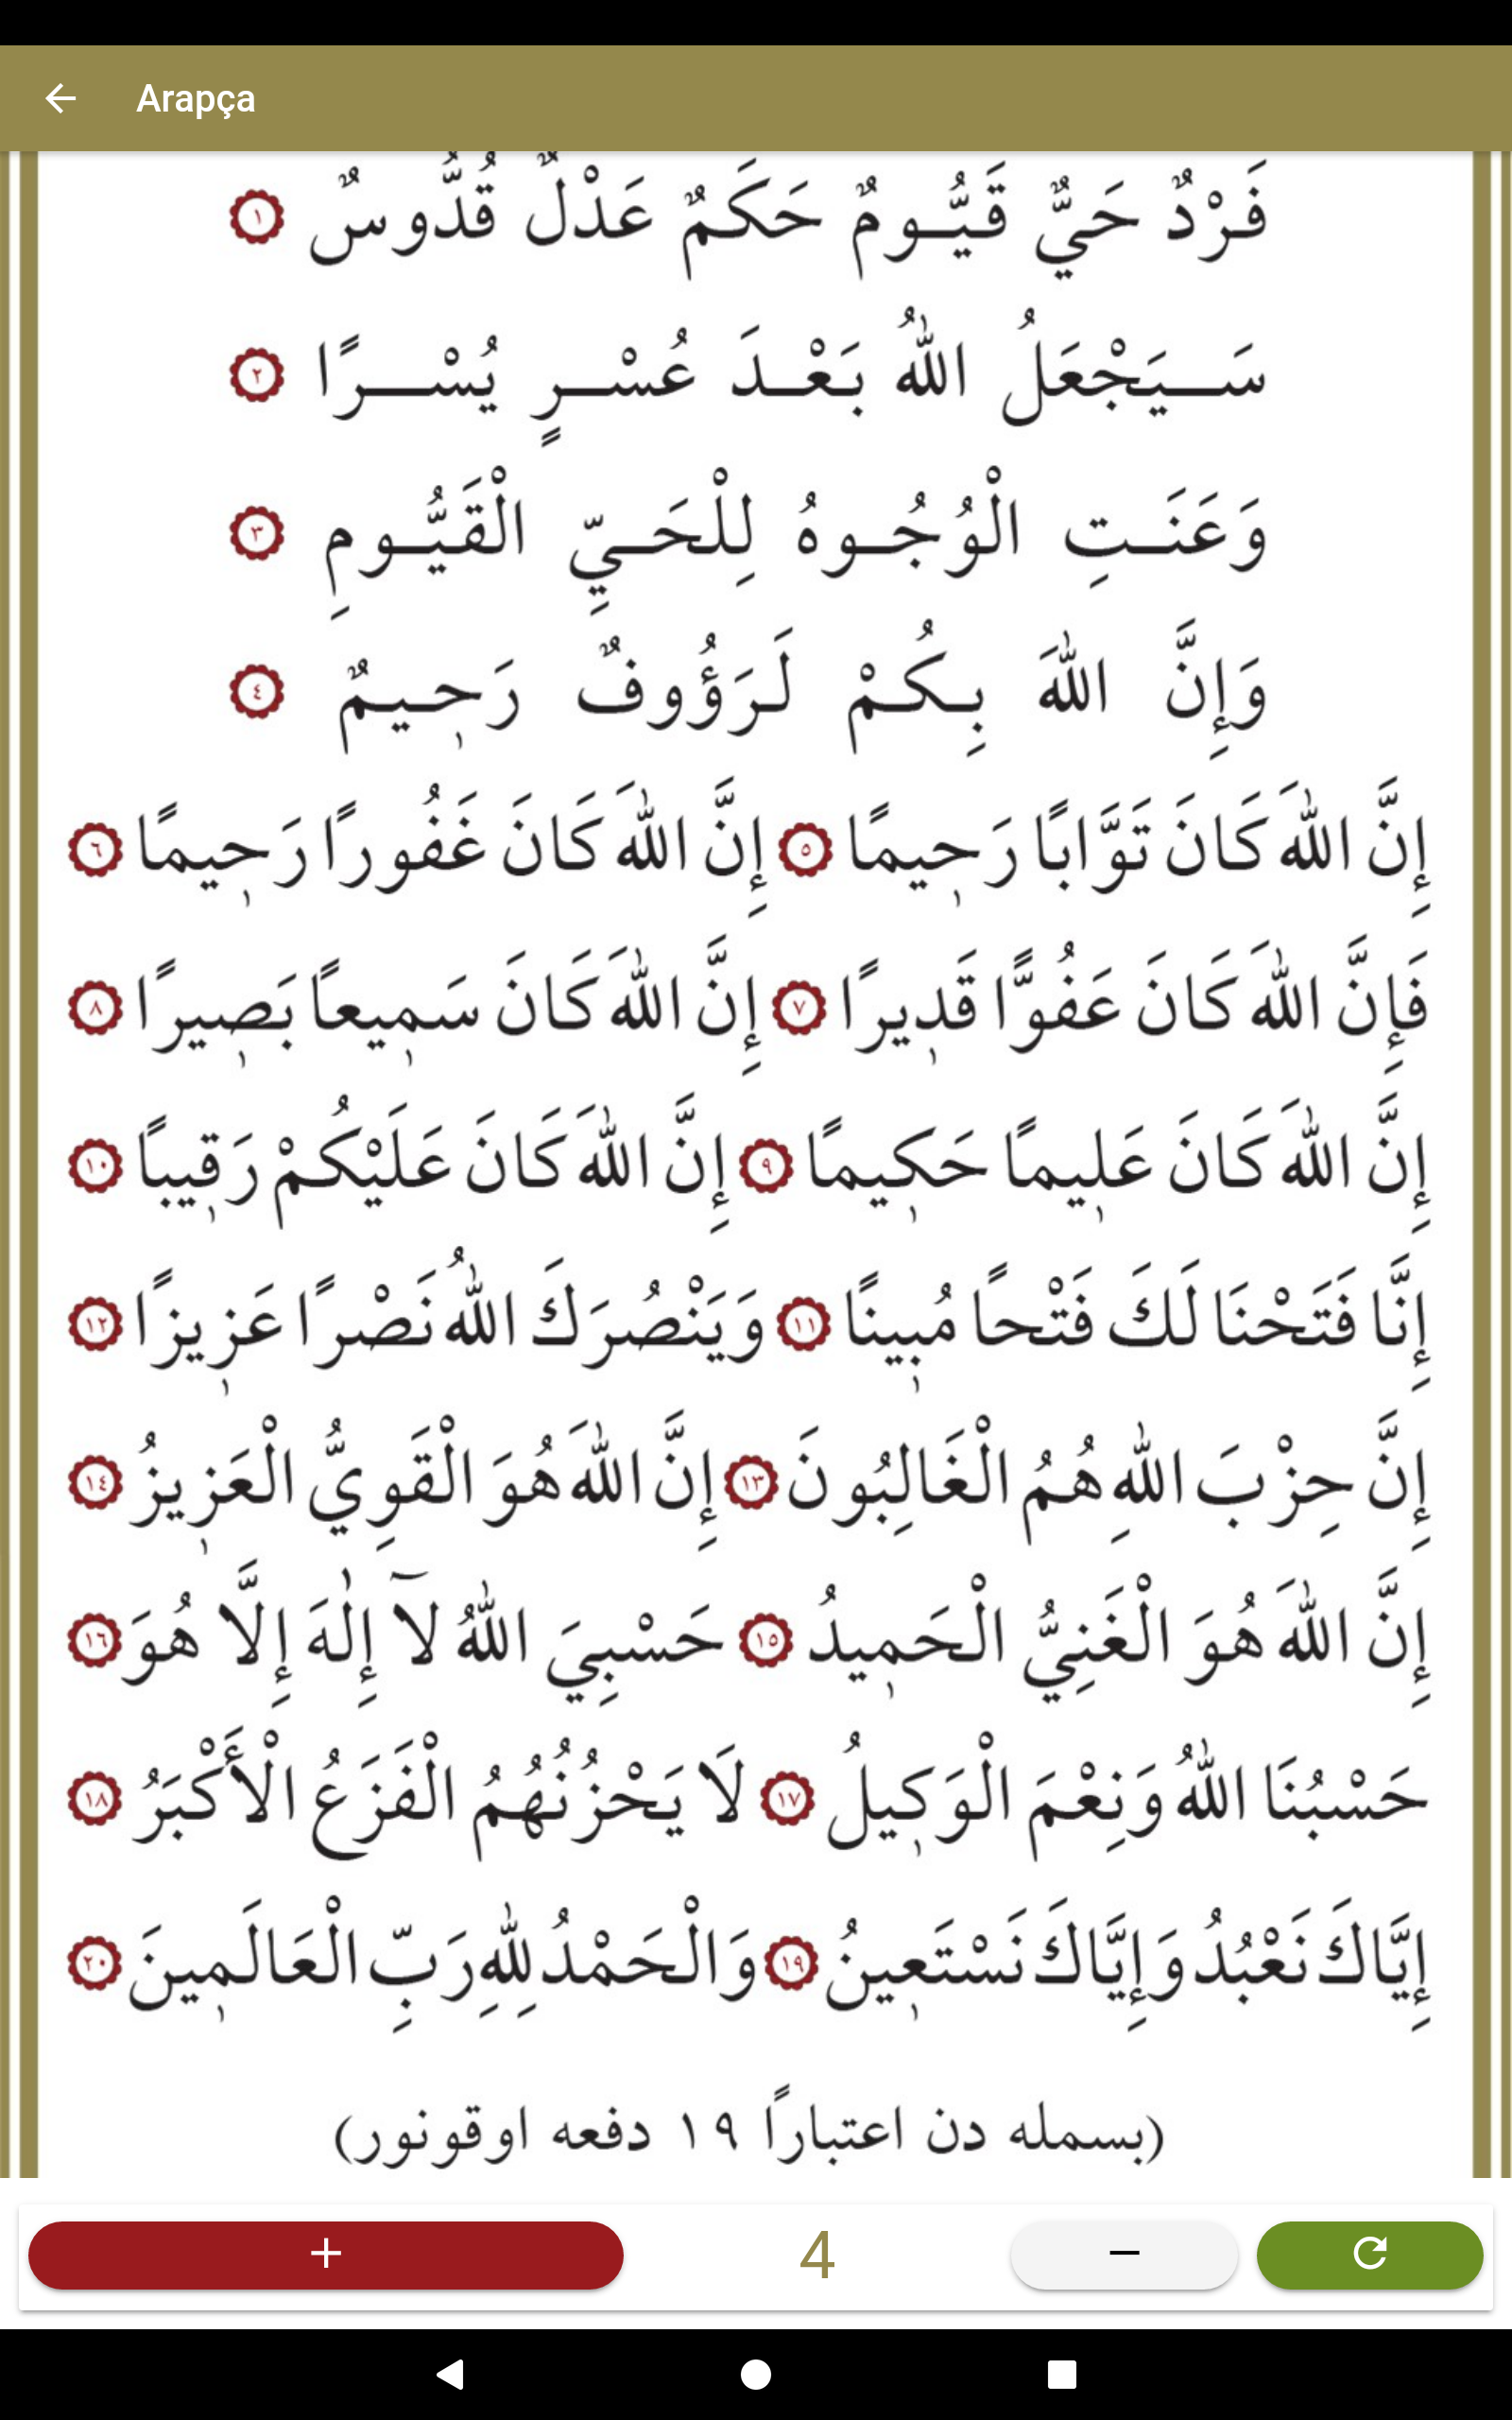 Arapça
فَرْدٌ حَيٌّ قَيُّومٌ حَكَمٌ عَدْلٌ قُدُّوسٌ ١
سَيَجْعَلُ اللّٰهُ بَعْدَ عُسْرٍ يُسْرًا ٢
وَعَنَتِ الْوُجُوهُ لِلْحَيِّ الْقَيُّومِ ٣
وَإِنَّ اللّٰهَ بِكُمْ لَرَؤُوفٌ رَحٖيمٌ ٤
إِنَّ اللّٰهَ كَانَ تَوَّابًا رَحٖيمًا ٥ إِنَّ اللّٰهَ كَانَ غَفُورًا رَحٖيمًا ٦
فَإِنَّ اللّٰهَ كَانَ عَفُوًّا قَدٖيرًا ٧ إِنَّ اللّٰهَ كَانَ سَمٖيعًا بَصٖيرًا ٨
إِنَّ اللّٰهَ كَانَ عَلٖيمًا حَكٖيمًا ٩ إِنَّ اللّٰهَ كَانَ عَلَيْكُمْ رَقٖيبًا ١٠
إِنَّا فَتَحْنَا لَكَ فَتْحًا مُبٖينًا ١١ وَيَنْصُرَكَ اللّٰهُ نَصْرًا عَزٖيزًا ١٢
إِنَّ حِزْبَ اللّٰهِ هُمُ الْغَالِبُونَ ١٣ إِنَّ اللّٰهَ هُوَ الْقَوِيُّ الْعَزٖيزُ ١٤
إِنَّ اللّٰهَ هُوَ الْغَنِيُّ الْحَمٖيدُ ١٥ حَسْبِيَ اللّٰهُ لَآ إِلٰهَ إِلَّا هُوَ ١٦
حَسْبُنَا اللّٰهُ وَنِعْمَ الْوَكٖيلُ ١٧ لَا يَحْزُنُهُمُ الْفَزَعُ الْأَكْبَرُ ١٨
إِيَّاكَ نَعْبُدُ وَإِيَّاكَ نَسْتَعٖينُ ١٩ وَالْحَمْدُ لِلّٰهِ رَبِّ الْعَالَمٖينَ ٢٠
(بسمله دن اعتبارًا ١٩ دفعه اوقونور)
+ 4 −